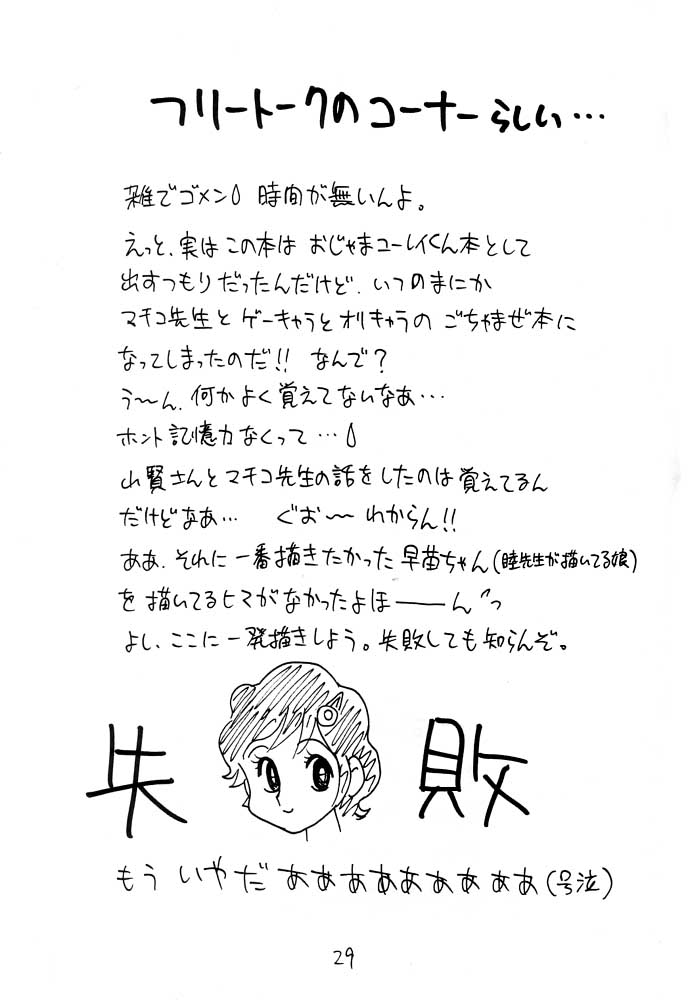 フリートークのコーナーらしい…
雑でゴメン 時間が無いんよ。
えっと、実はこの本は おじゃまユーレイくん本として
出すつもりだったんだけど、いつのまにか
マチコ先生と ゲーキャラとオリキャラの ごちゃまぜ本に
なってしまったのだ!! なんで?
う〜ん、何かよく覚えてないなあ…
ホント記憶力なくって…
山賢さんとマチコ先生の話をしたのは覚えてるん
だけどなあ… ぐお〜 わからん!!
ああ、それに一番描きたかった早苗ちゃん(睦先生が描いてる娘)
を描いてるヒマがなかったよほーーんっ
よし、ここに一発描きしよう。失敗しても知らんぞ。
失敗
もういやだあああああああああ(号泣)
29